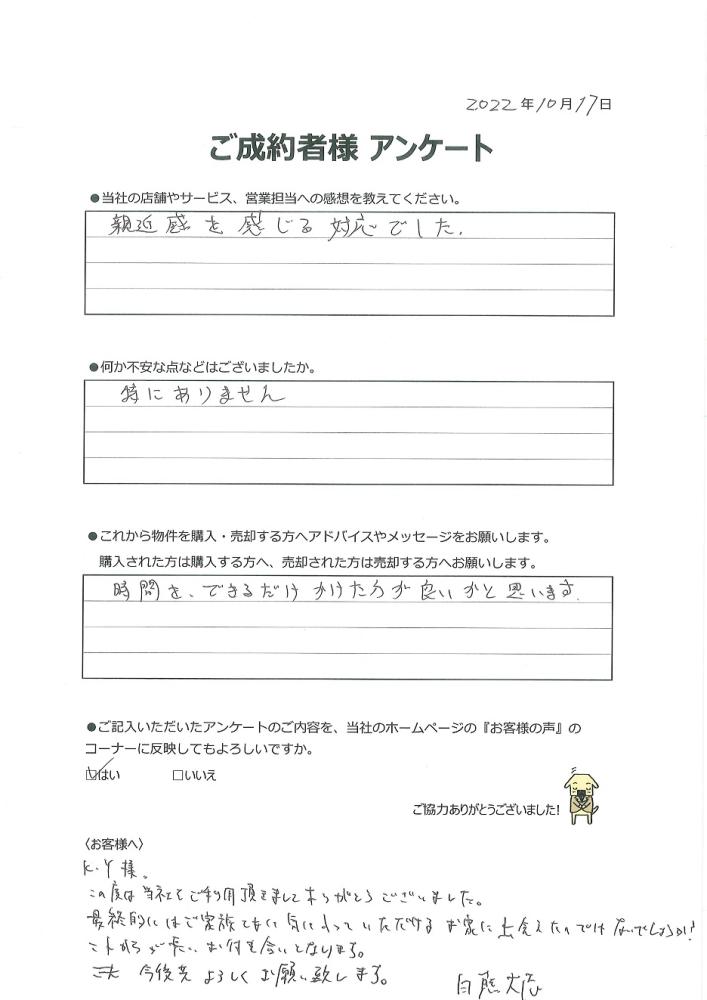 2022年10月17日
ご成約者様 アンケート
●当社の店舗やサービス、営業担当への感想を教えてください。
親近感を感じる対応でした.
●何か不安な点などはございましたか。
特にありません
●これから物件を購入・売却する方へアドバイスやメッセージをお願いします。
購入された方は購入する方へ、売却された方は売却する方へお願いします。
時間を、できるだけかけた方が良いかと思います.
●ご記入いただいたアンケートのご内容を、当社のホームページの『お客様の声』の
コーナーに反映してもよろしいですか。
☑はい □いいえ
ご協力ありがとうございました!
〈お客様へ〉
K.Y様。
この度は当社をご利用頂きましてありがとうございました。
最終的にはご家族ともに気に入っていただけるお家に出会えたのではないでしょうか?
これからが長いお付き合いとなります。
今後共よろしくお願い致します。